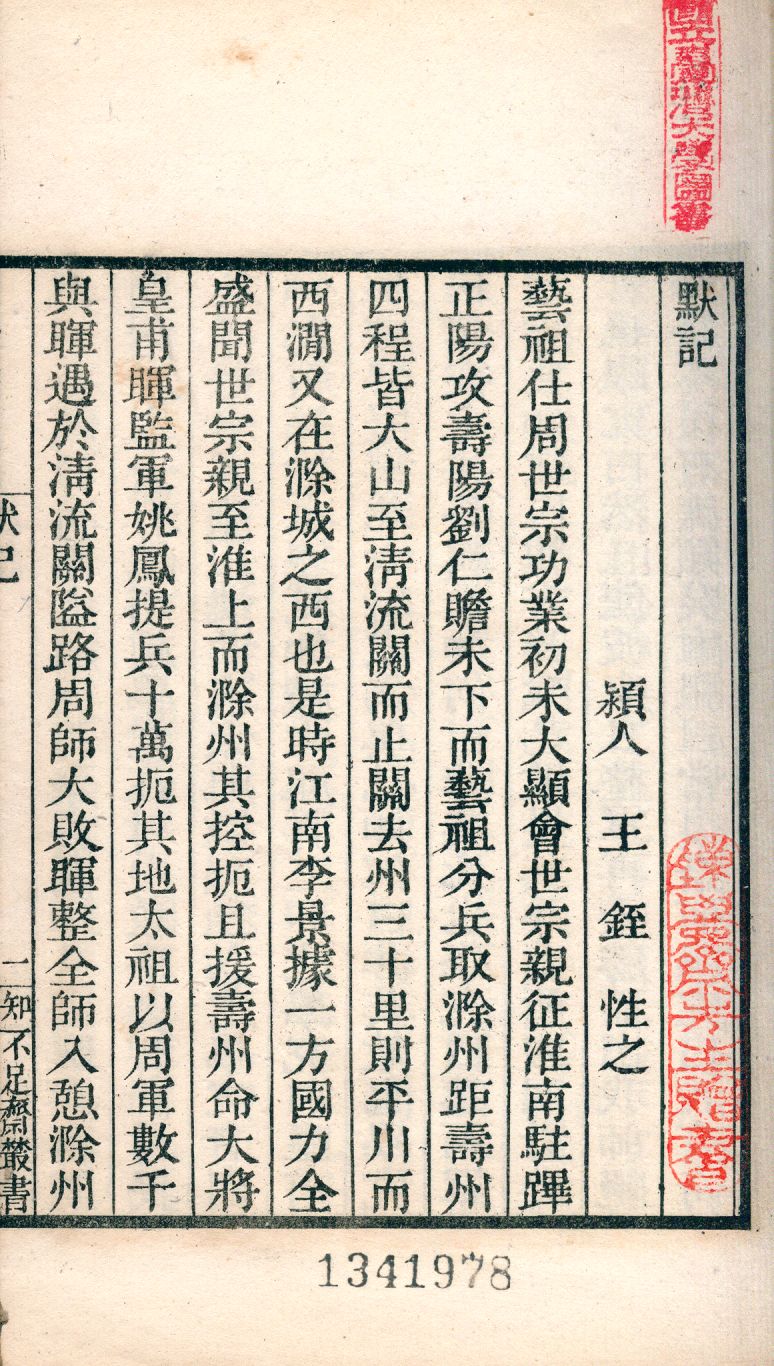 國立臺灣大學圖書
默記
潁人王銍性之
藝祖仕周世宗功業初未大顯會世宗親征淮南駐蹕
正陽攻壽陽劉仁贍未下而藝祖分兵取滁州距壽州
四程皆大山至淸流關而止關去州三十里則平川而
西澗又在滁城之西也是時江南李景據一方國力全
盛聞世宗親至淮上而滁州其控扼且援壽州命大將
皇甫暉監軍姚鳳提兵十萬扼其地太祖以周軍數千
與暉遇於淸流關隘路周師大敗暉整全師入憩滁州
默記
一
知不足齋叢書
1341978